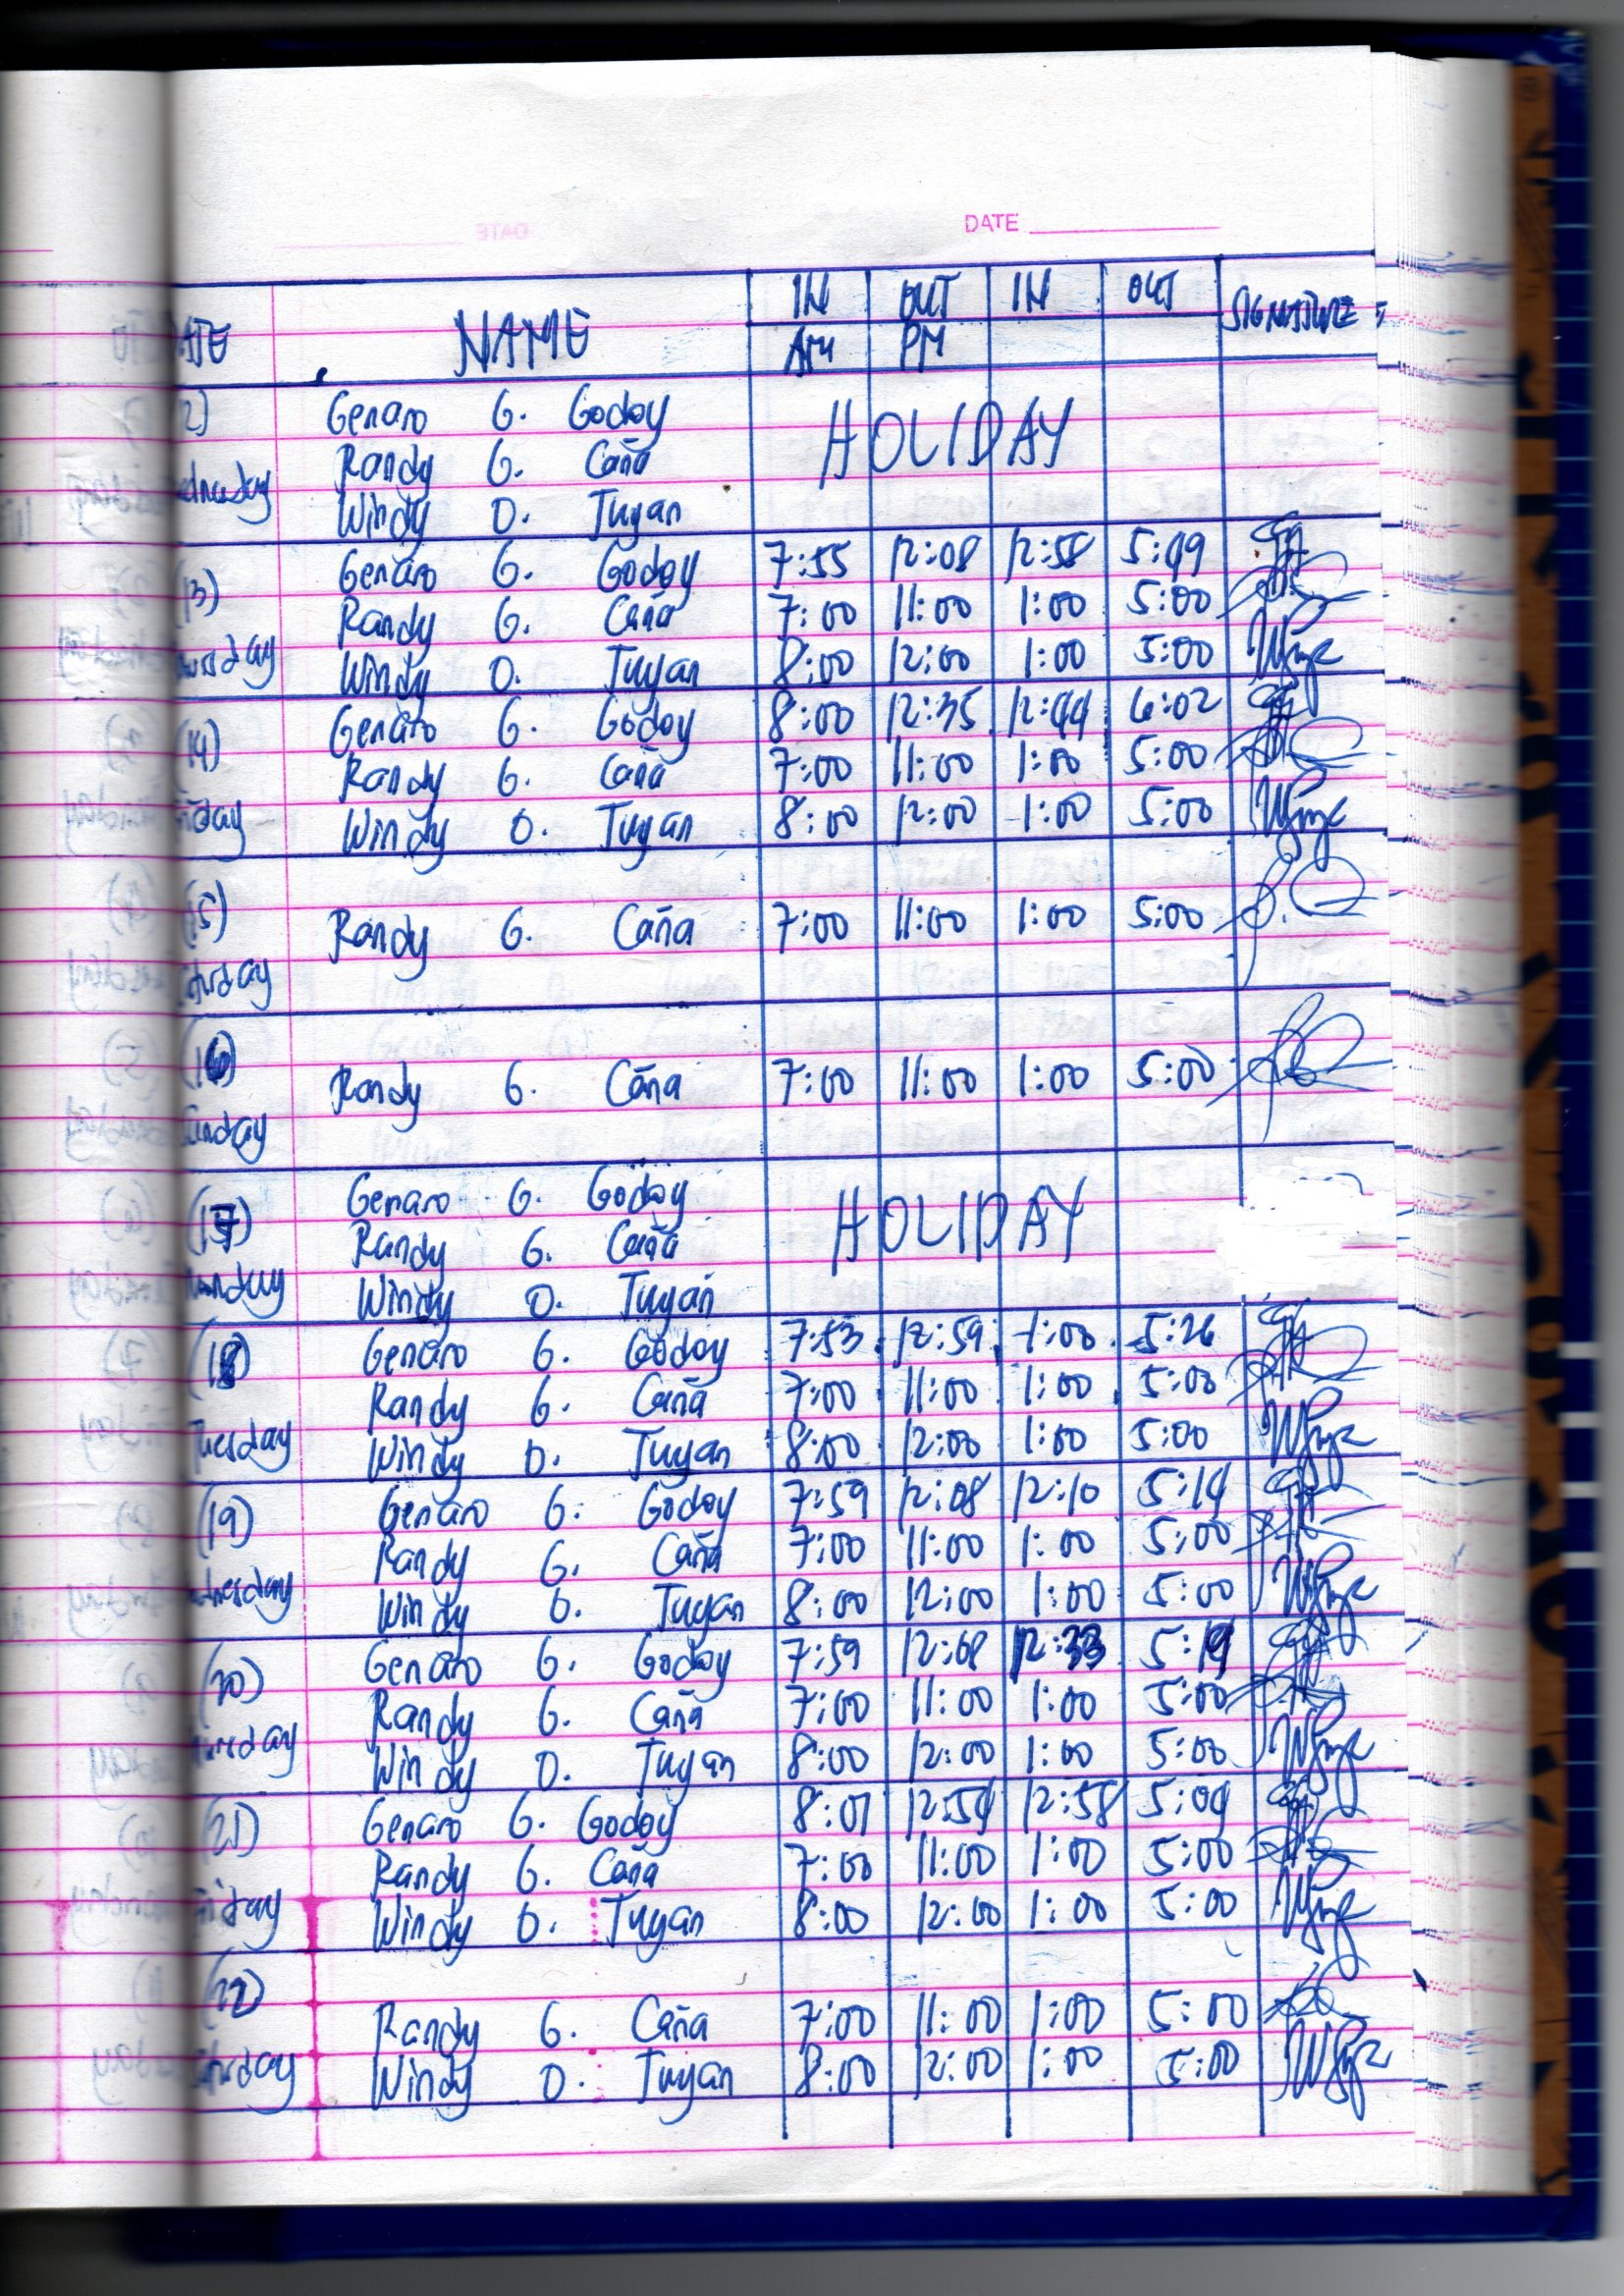 DATE
IN OUT IN OUT
NAME SIGNATURE
AM PM
Genaro G. Godoy
Randy G. Caña HOLIDAY
Windy O. Tuyan
Genaro G. Godoy 7:55 12:08 12:58 5:49
(13) Randy G. Caña 7:00 11:00 1:00 5:00
Windy O. Tuyan 8:00 12:00 1:00 5:00
Genaro G. Godoy 8:00 12:35 12:44 6:02
(14) Randy G. Caña 7:00 11:00 1:00 5:00
Windy O. Tuyan 8:00 12:00 1:00 5:00
(15) Randy G. Caña 7:00 11:00 1:00 5:00
(16) Randy G. Caña 7:00 11:00 1:00 5:00
Genaro G. Godoy
(17) Randy G. Caña HOLIDAY
Windy O. Tuyan
Genaro G. Godoy 7:53 12:59 1:00 5:26
(18) Randy G. Caña 7:00 11:00 1:00 5:00
Tuesday Windy O. Tuyan 8:00 12:00 1:00 5:00
Genaro G. Godoy 7:59 12:08 12:10 5:14
(19) Randy G. Caña 7:00 11:00 1:00 5:00
Windy O. Tuyan 8:00 12:00 1:00 5:00
Genaro G. Godoy 7:59 12:08 12:33 5:19
(20) Randy G. Caña 7:00 11:00 1:00 5:00
Windy O. Tuyan 8:00 12:00 1:00 5:00
(21) Genaro G. Godoy 8:01 12:54 12:58 5:04
Randy G. Caña 7:00 11:00 1:00 5:00
Windy O. Tuyan 8:00 12:00 1:00 5:00
(22)
Randy G. Caña 7:00 11:00 1:00 5:00
Windy O. Tuyan 8:00 12:00 1:00 5:00